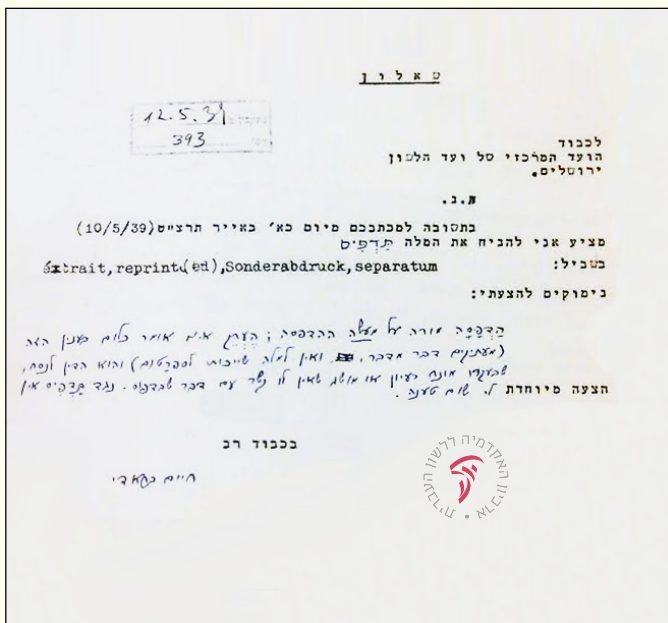 שאלון
12.5.39
393
לכבוד
הועד המרכזי של ועד הלשון
ירושלים.
א.נ.
בתשובה למכתבכם מיום כא' באייר תרצ"ט (10/5/39)
מציע אני להניח את המלה תַּדְפִּיס
בשביל: extrait,reprint(ed),Sonderabdruck,separatum
נימוקים להצעתי:
הַדְפָּסָה מורה על מעשה ההדפסה; הֶעְתֵּק אינו אומר כלום בענין הזה
(מעתיקים דבר מדבר, ואין למלה שייכות לספרטום) והוא הדין לנסח,
מונח רעיון או מושג שאין לו קשר עם דבר שבדפוס. נגד תַּדְפִּיס אין
הצעה מיוחדת לי שום טענה.
בכבוד רב
חיים
ארכיון האקדמיה ללשון העברית